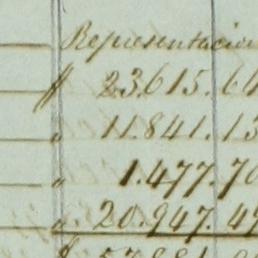 Representacion
$ 23.615.64
" 11.841.13
" 1.477.70
" 20.947.49